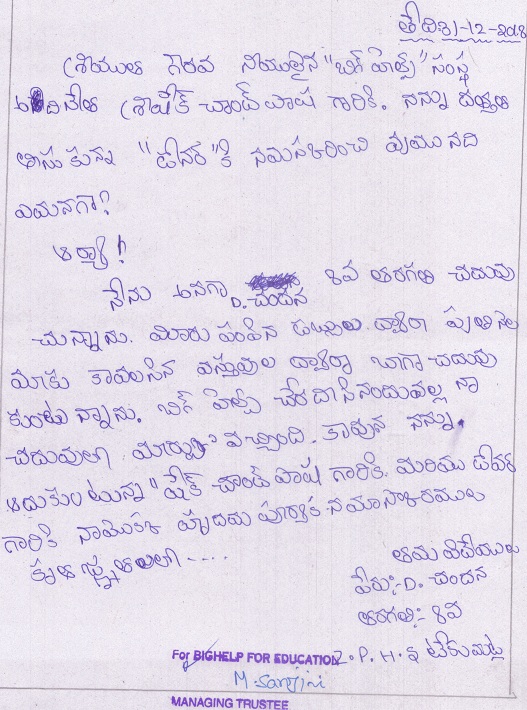 తేది:31-12-2018
శ్రీయుత గౌరవ నీయులైన "బిగ్ హెల్ప్" సంస్థ
అదినేత శ్రీషేక్ చాంద్ పాష గారికి. నన్ను దత్తత
తీసుకున్న "డోనర్" కి నమస్కరించి వ్రాయునది
ఏమనగా?
ఆర్యా!
నేను అనగా D. చందన 8వ తరగతి చదువు
చున్నాను. మీరు పంపిన డబ్బులు ద్వారా ప్రతినెల
మాకు కావలసిన వస్తువుల ద్వారా బాగా చదువు
కుంటున్నాను. బిగ్ హెల్ప్ చేరదీసినందువల్ల నా
చదువులో మార్పు వచ్చింది. కావున నన్ను
ఆదుకుంటున్న "షేక్ చాంద్ పాష గారికి. మరియు డోనర్
గారికి నాయొక్క హృదయ పూర్వక నమస్కారములు
కృతజ్ఞతలతో ....
తమ విదేయులు
పేరు:- D. చందన
తరగతి:- 8వ
Z.P.H.S టేకుమట్ల
For BIGHELP FOR EDUCATION
M. Sanjini
MANAGING TRUSTEE